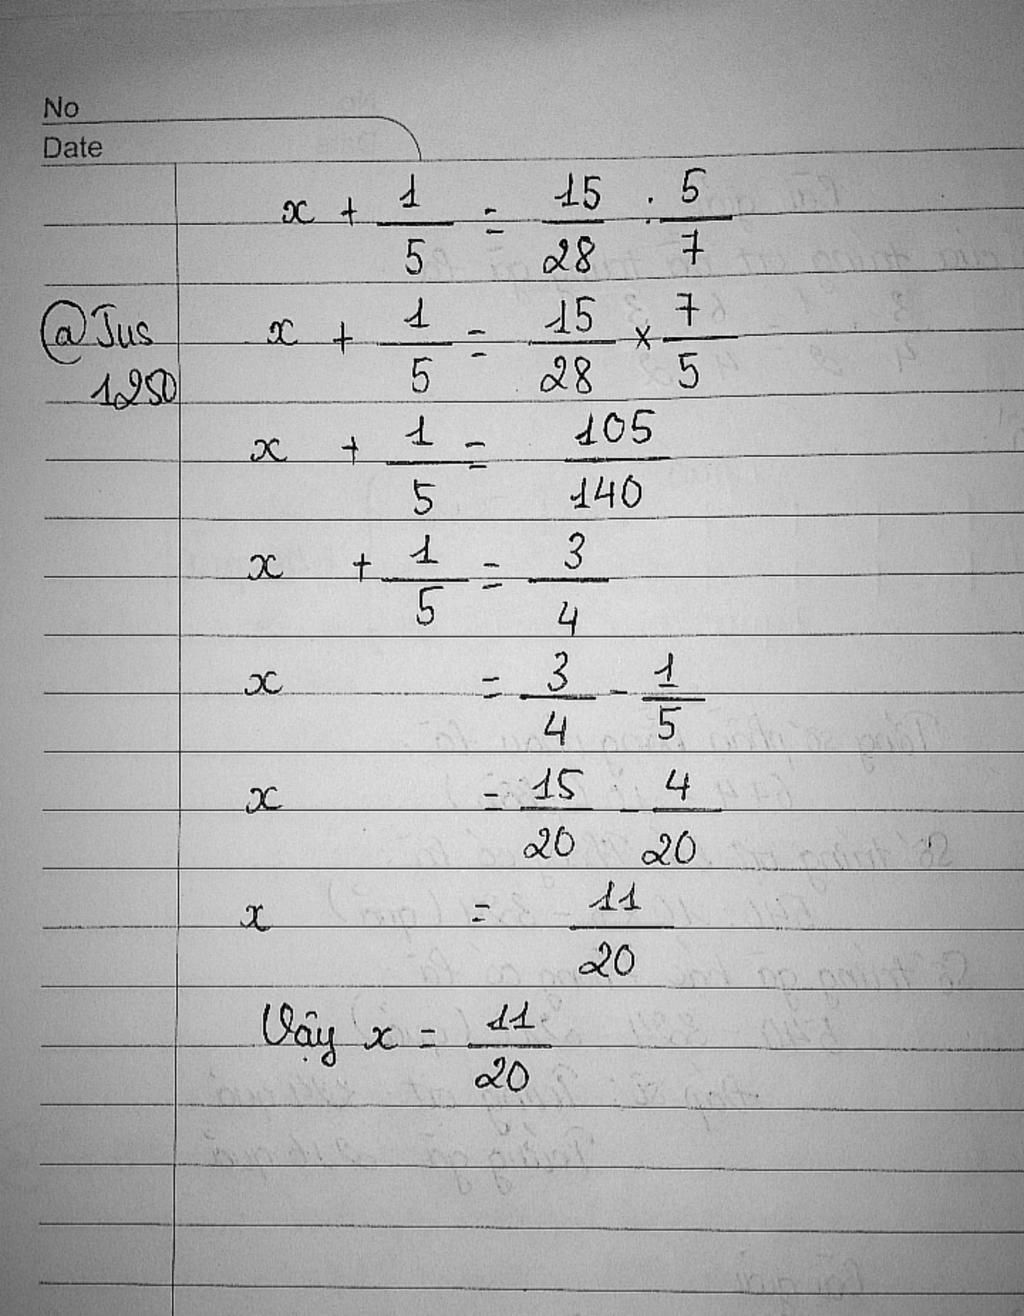 No
Date
x + 1/5 = 15/28 : 5/7
@Jus
1250
x + 1/5 = 15/28 × 7/5
x + 1/5 = 105/140
x + 1/5 = 3/4
x = 3/4 - 1/5
x = 15/20 - 4/20
x = 11/20
Vậy x = 11/20